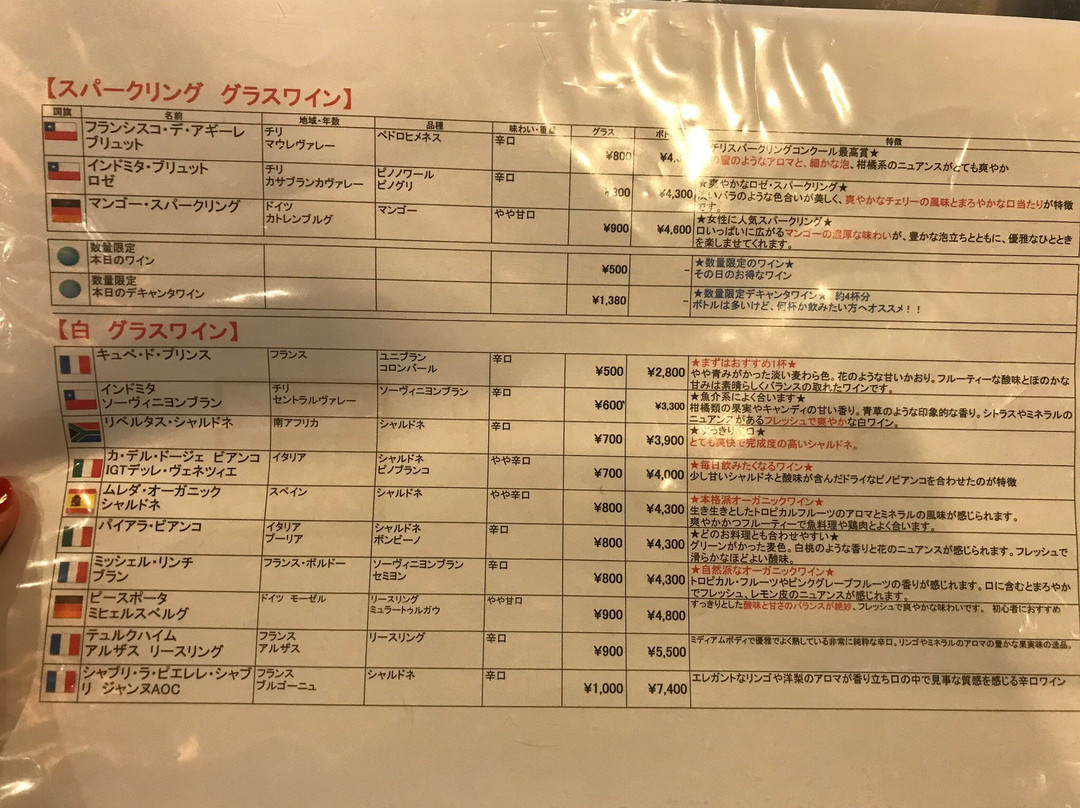 【スパークリング グラスワイン】
国旗 名前 地域・年数 品種 味わい・重 グラス 特徴
フランシスコ・デ・アギーレ チリ ペドロヒメネス 辛口 ¥800 チリスパークリングコンクール最高賞★
ブリュット マウレヴァレー 蜜のようなアロマと、細かな泡、柑橘系のニュアンスがとても爽やか
インドミタ・ブリュット チリ ピノノワール 辛口 ¥4,300 ★爽やかなロゼ・スパークリング★
ロゼ カサブランカヴァレー ピノグリ 淡いバラのような色合いが美しく、爽やかなチェリーの風味とまろやかな口当たりが特徴
です。
マンゴー・スパークリング ドイツ マンゴー やや甘口 ¥900 ¥4,600 ★女性に人気スパークリング★
カトレンブルグ 口いっぱいに広がるマンゴーの濃厚な味わいが、豊かな泡立ちとともに、優雅なひととき
を楽しませてくれます。
数量限定 ¥500 - ★数量限定のワイン★
本日のワイン その日のお得なワイン
数量限定 ¥1,380 - ★数量限定デキャンタワイン★ 約4杯分
本日のデキャンタワイン ボトルは多いけど、何杯か飲みたい方へオススメ！！
【白 グラスワイン】
キュベ・ド・プリンス フランス ユニブラン 辛口 ¥500 ¥2,800 ★まずはおすすめ1杯★
コロンバール やや青みがかった淡い麦わら色。花のような甘いかおり。フルーティーな酸味とほのかな
甘みは素晴らしくバランスの取れたワインです。
インドミタ チリ ソーヴィニヨンブラン 辛口 ¥600 ¥3,300 ★魚介系によく合います★
ソーヴィニヨンブラン セントラルヴァレー 柑橘類の果実やキャンディの甘い香り。青草のような印象的な香り。シトラスやミネラルの
ニュアンスがあるフレッシュで爽やかな白ワイン。
リベルタス・シャルドネ 南アフリカ シャルドネ 辛口 ¥700 ¥3,900 ★すっきり辛口★
とても爽快で完成度の高いシャルドネ。
カ・デル・ドージェ ビアンコ イタリア シャルドネ やや辛口 ¥700 ¥4,000 ★毎日飲みたくなるワイン★
IGTデッレ・ヴェネツィエ ピノブランコ 少し甘いシャルドネと酸味が含んだドライなピノビアンコを合わせたのが特徴
ムレダ・オーガニック スペイン シャルドネ やや辛口 ¥800 ¥4,300 ★本格派オーガニックワイン★
シャルドネ 生き生きとしたトロピカルフルーツのアロマとミネラルの風味が感じられます。
爽やかかつフルーティーで魚料理や鶏肉とよく合います。
パイアラ・ビアンコ イタリア シャルドネ 辛口 ¥800 ¥4,300 ★どのお料理とも合わせやすい★
プーリア ボンビーノ グリーンがかった麦色。白桃のような香りと花のニュアンスが感じられます。フレッシュで
滑らかなほどよい酸味。
ミッシェル・リンチ フランス・ボルドー ソーヴィニヨンブラン 辛口 ¥800 ¥4,300 ★自然派なオーガニックワイン★
ブラン セミヨン トロピカル・フルーツやピンクグレープフルーツの香りが感じれます。口に含むとまろやか
でフレッシュ、レモン皮のニュアンスが感じれます。
ピースポータ ドイツ モーゼル リースリング やや甘口 ¥900 ¥4,800 すっきりとした酸味と甘さのバランスが絶妙、フレッシュで爽やかな味わいです。 初心者におすすめ
ミヒェルスベルグ ミュラートゥルガウ
テュルクハイム フランス リースリング 辛口 ¥900 ¥5,500 ミディアムボディで優雅でよく熟している非常に純粋な辛口。リンゴやミネラルのアロマの豊かな果実味の逸品。
アルザス リースリング アルザス
シャブリ・ラ・ピエレレ・シャブ フランス シャルドネ 辛口 ¥1,000 ¥7,400 エレガントなリンゴや洋梨のアロマが香り立ち口の中で見事な質感を感じる辛口ワイン
リ ジャンヌAOC ブルゴーニュ